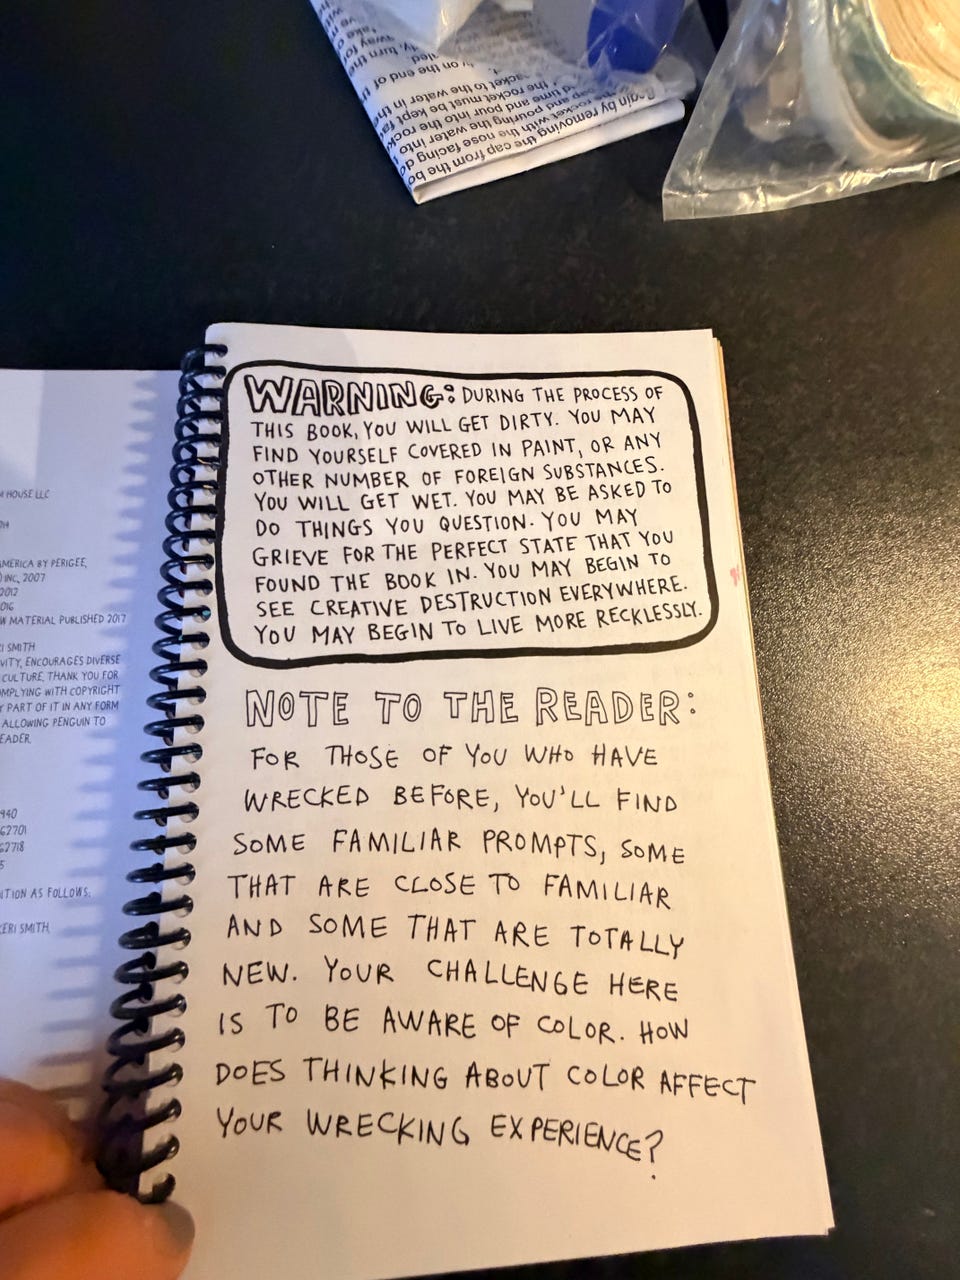 Begin by removing the cap from the bo
M HOUSE LLC
MERICA BY PERIGEE,
INC, 2007
2012
2016
W MATERIAL PUBLISHED 2017
RI SMITH
VITY, ENCOURAGES DIVERSE
CULTURE, THANK YOU FOR
MPLYING WITH COPYRIGHT
Y PART OF IT IN ANY FORM
ALLOWING PENGUIN TO
EADER.
940
62701
62718
5
ITION AS FOLLOWS:
KERI SMITH
WARNING: DURING THE PROCESS OF
THIS BOOK, YOU WILL GET DIRTY. YOU MAY
FIND YOURSELF COVERED IN PAINT, OR ANY
OTHER NUMBER OF FOREIGN SUBSTANCES.
YOU WILL GET WET. YOU MAY BE ASKED TO
DO THINGS YOU QUESTION. YOU MAY
GRIEVE FOR THE PERFECT STATE THAT YOU
FOUND THE BOOK IN. YOU MAY BEGIN TO
SEE CREATIVE DESTRUCTION EVERYWHERE.
YOU MAY BEGIN TO LIVE MORE RECKLESSLY.
NOTE TO THE READER:
FOR THOSE OF YOU WHO HAVE
WRECKED BEFORE, YOU'LL FIND
SOME FAMILIAR PROMPTS, SOME
THAT ARE CLOSE TO FAMILIAR
AND SOME THAT ARE TOTALLY
NEW. YOUR CHALLENGE HERE
IS TO BE AWARE OF COLOR. HOW
DOES THINKING ABOUT COLOR AFFECT
YOUR WRECKING EXPERIENCE?